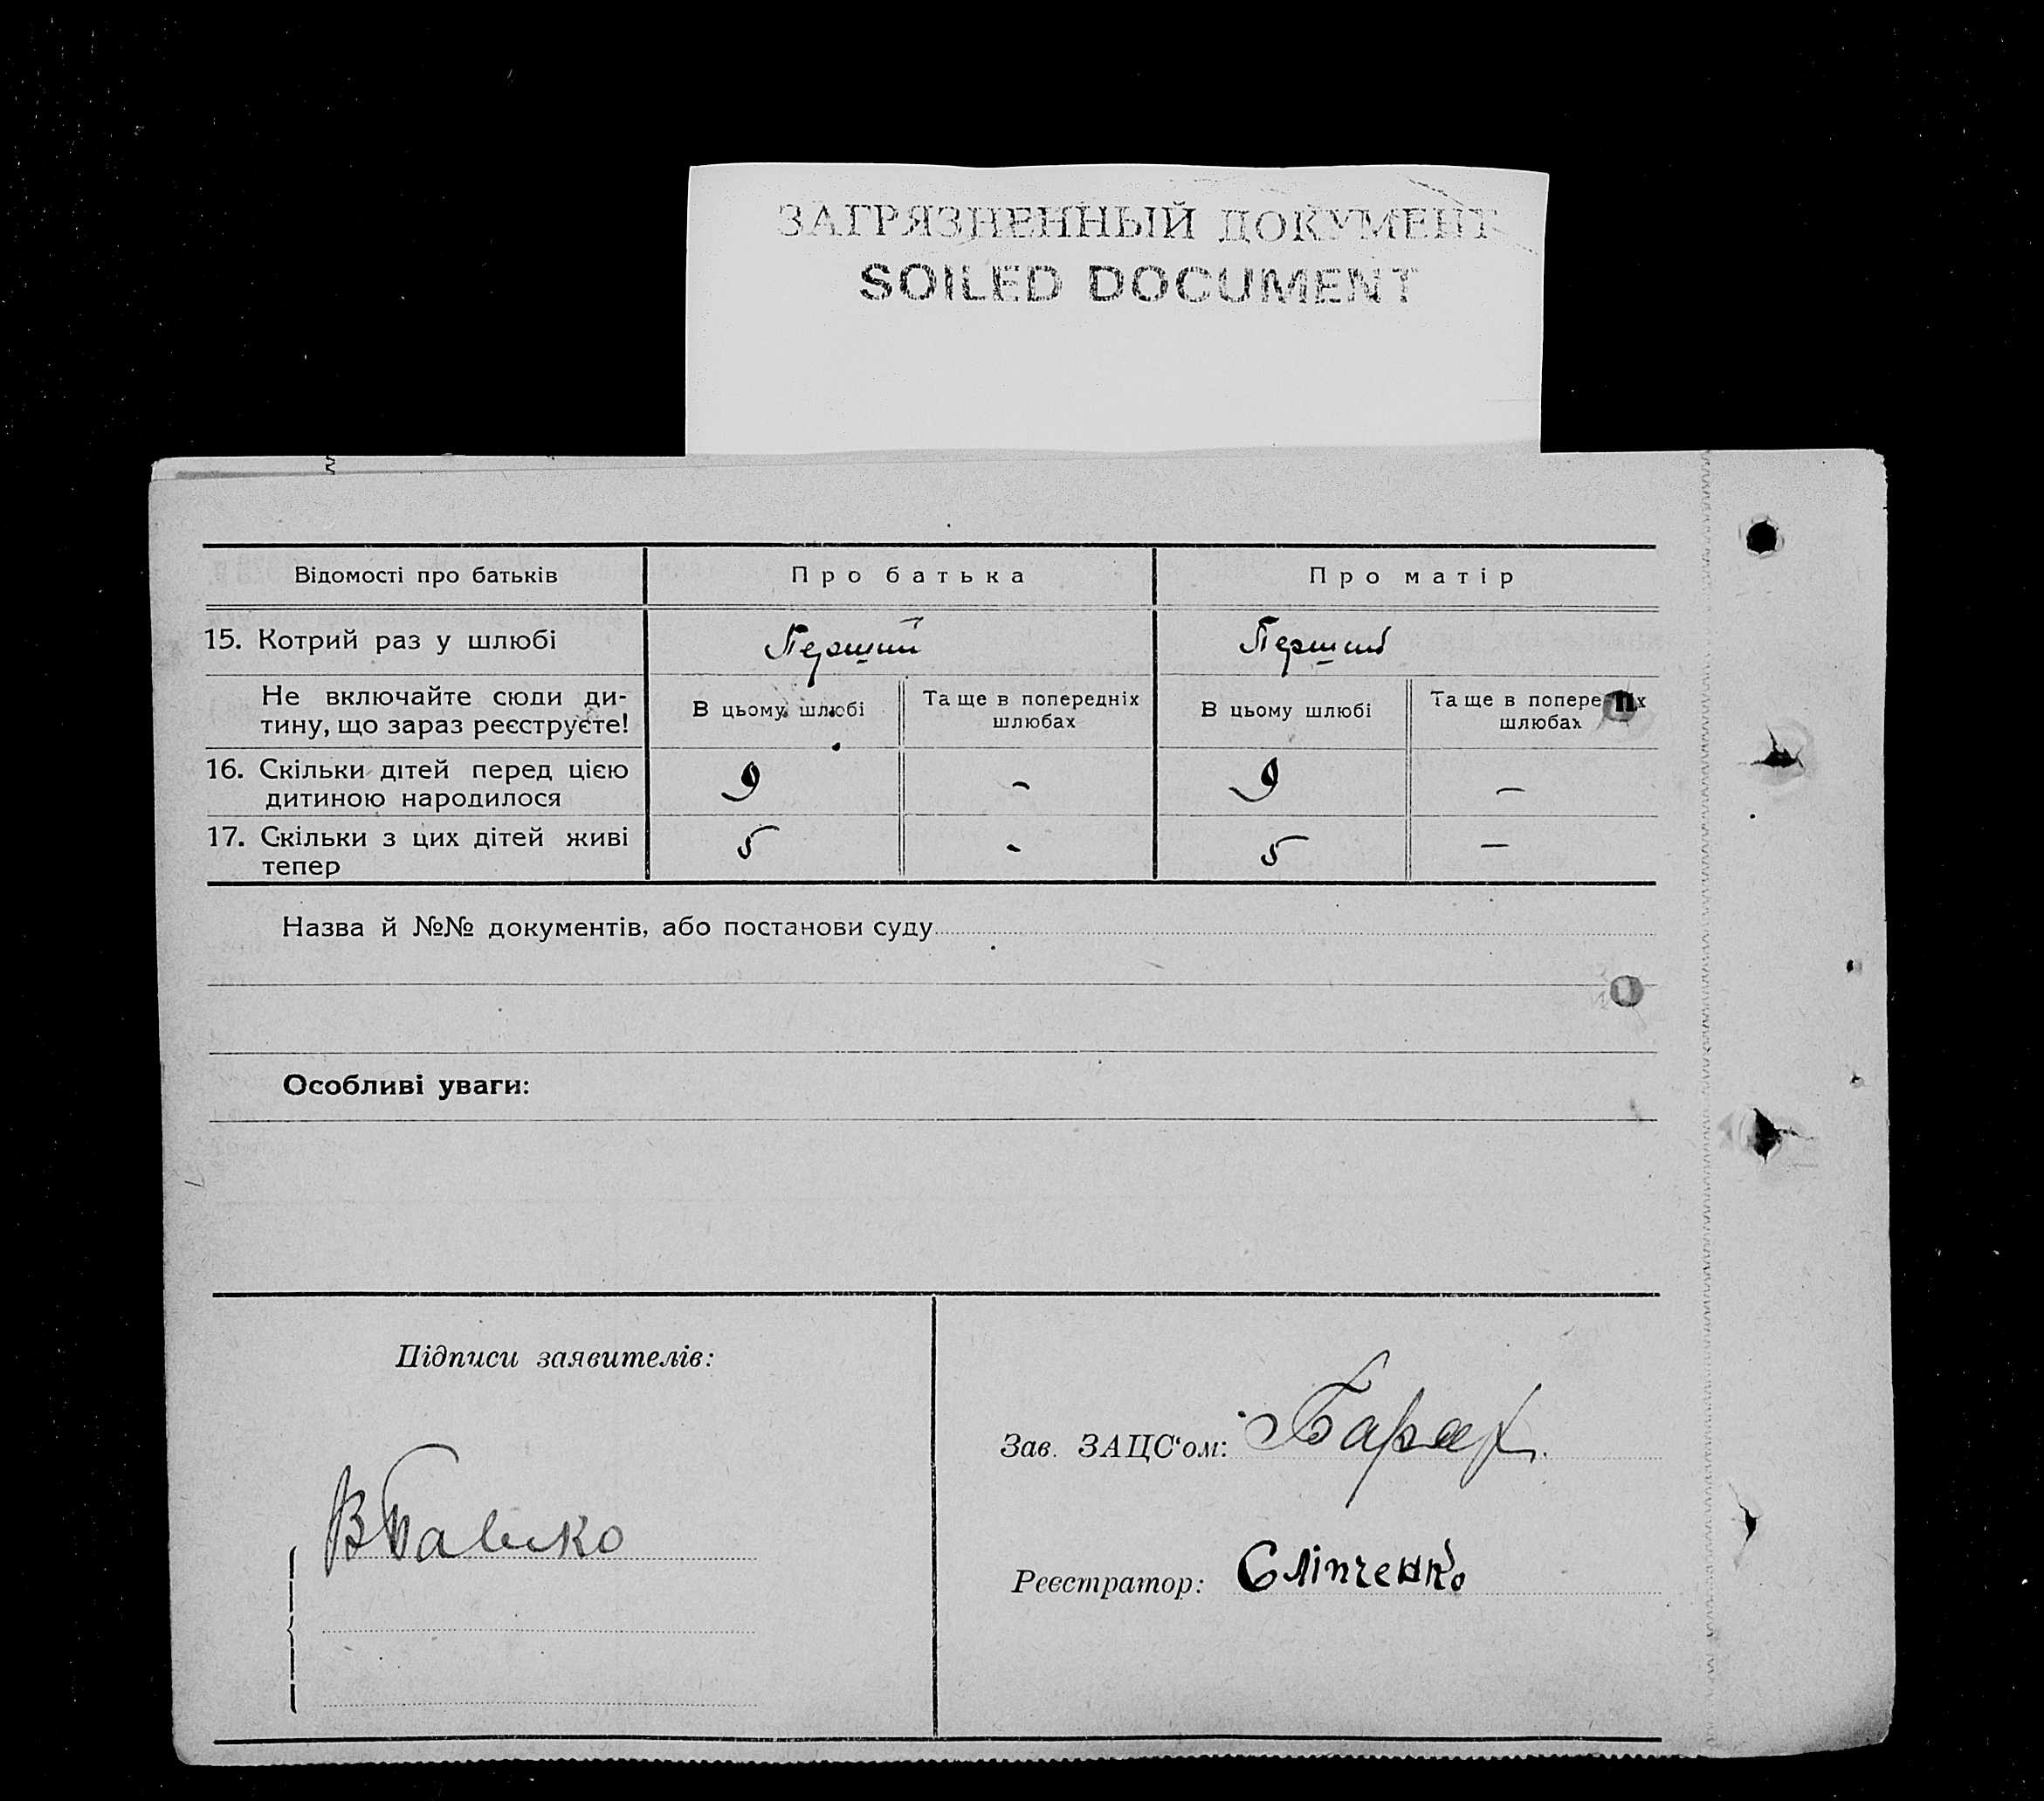 ЗАГРЯЗНЕННЫЙ ДОКУМЕНТ
SOILED DOCUMENT
Відомості про батьків Про батька Про матір
15. Котрий раз у шлюбі Перший Перший
Не включайте сюди ди-
тину, що зараз реєструєте!
В цьому шлюбі
Та ще в попередніх
шлюбах
В цьому шлюбі
Та ще в
шлюбах
16. Скільки дітей перед цією
дитиною народилося
9 - 9 —
17. Скільки з цих дітей живі
тепер
5 - 5 —
Назва й №№ документів, або постанови суду
Особливі уваги:
Підписи заявителів:
Зав. ЗАЦС'ом:
Реєстратор: Сліпченко